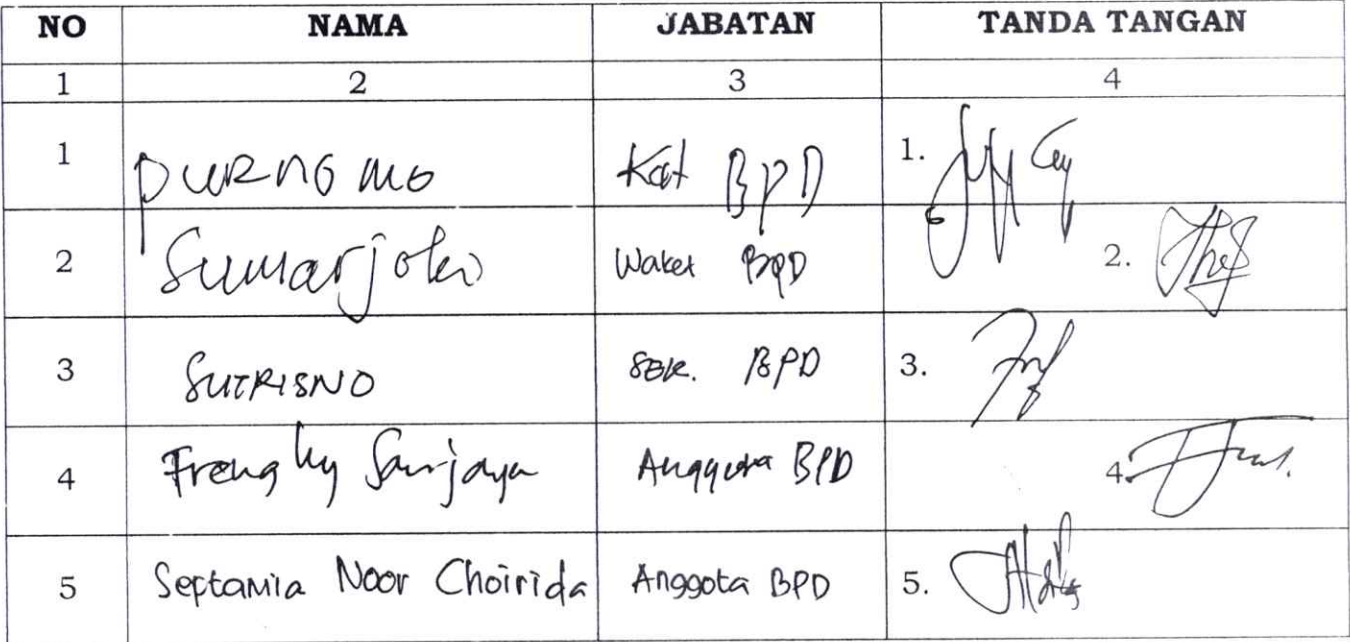 NO NAMA JABATAN TANDA TANGAN
1 2 3 4
1 PURNOMO Ket BPD 1.
2 Sumarjoko Waket BPD 2.
3 SUTRISNO SEK. BPD 3.
4 Frengky Sanjaya Anggota BPD 4.
5 Septamia Noor Choirida Anggota BPD 5.